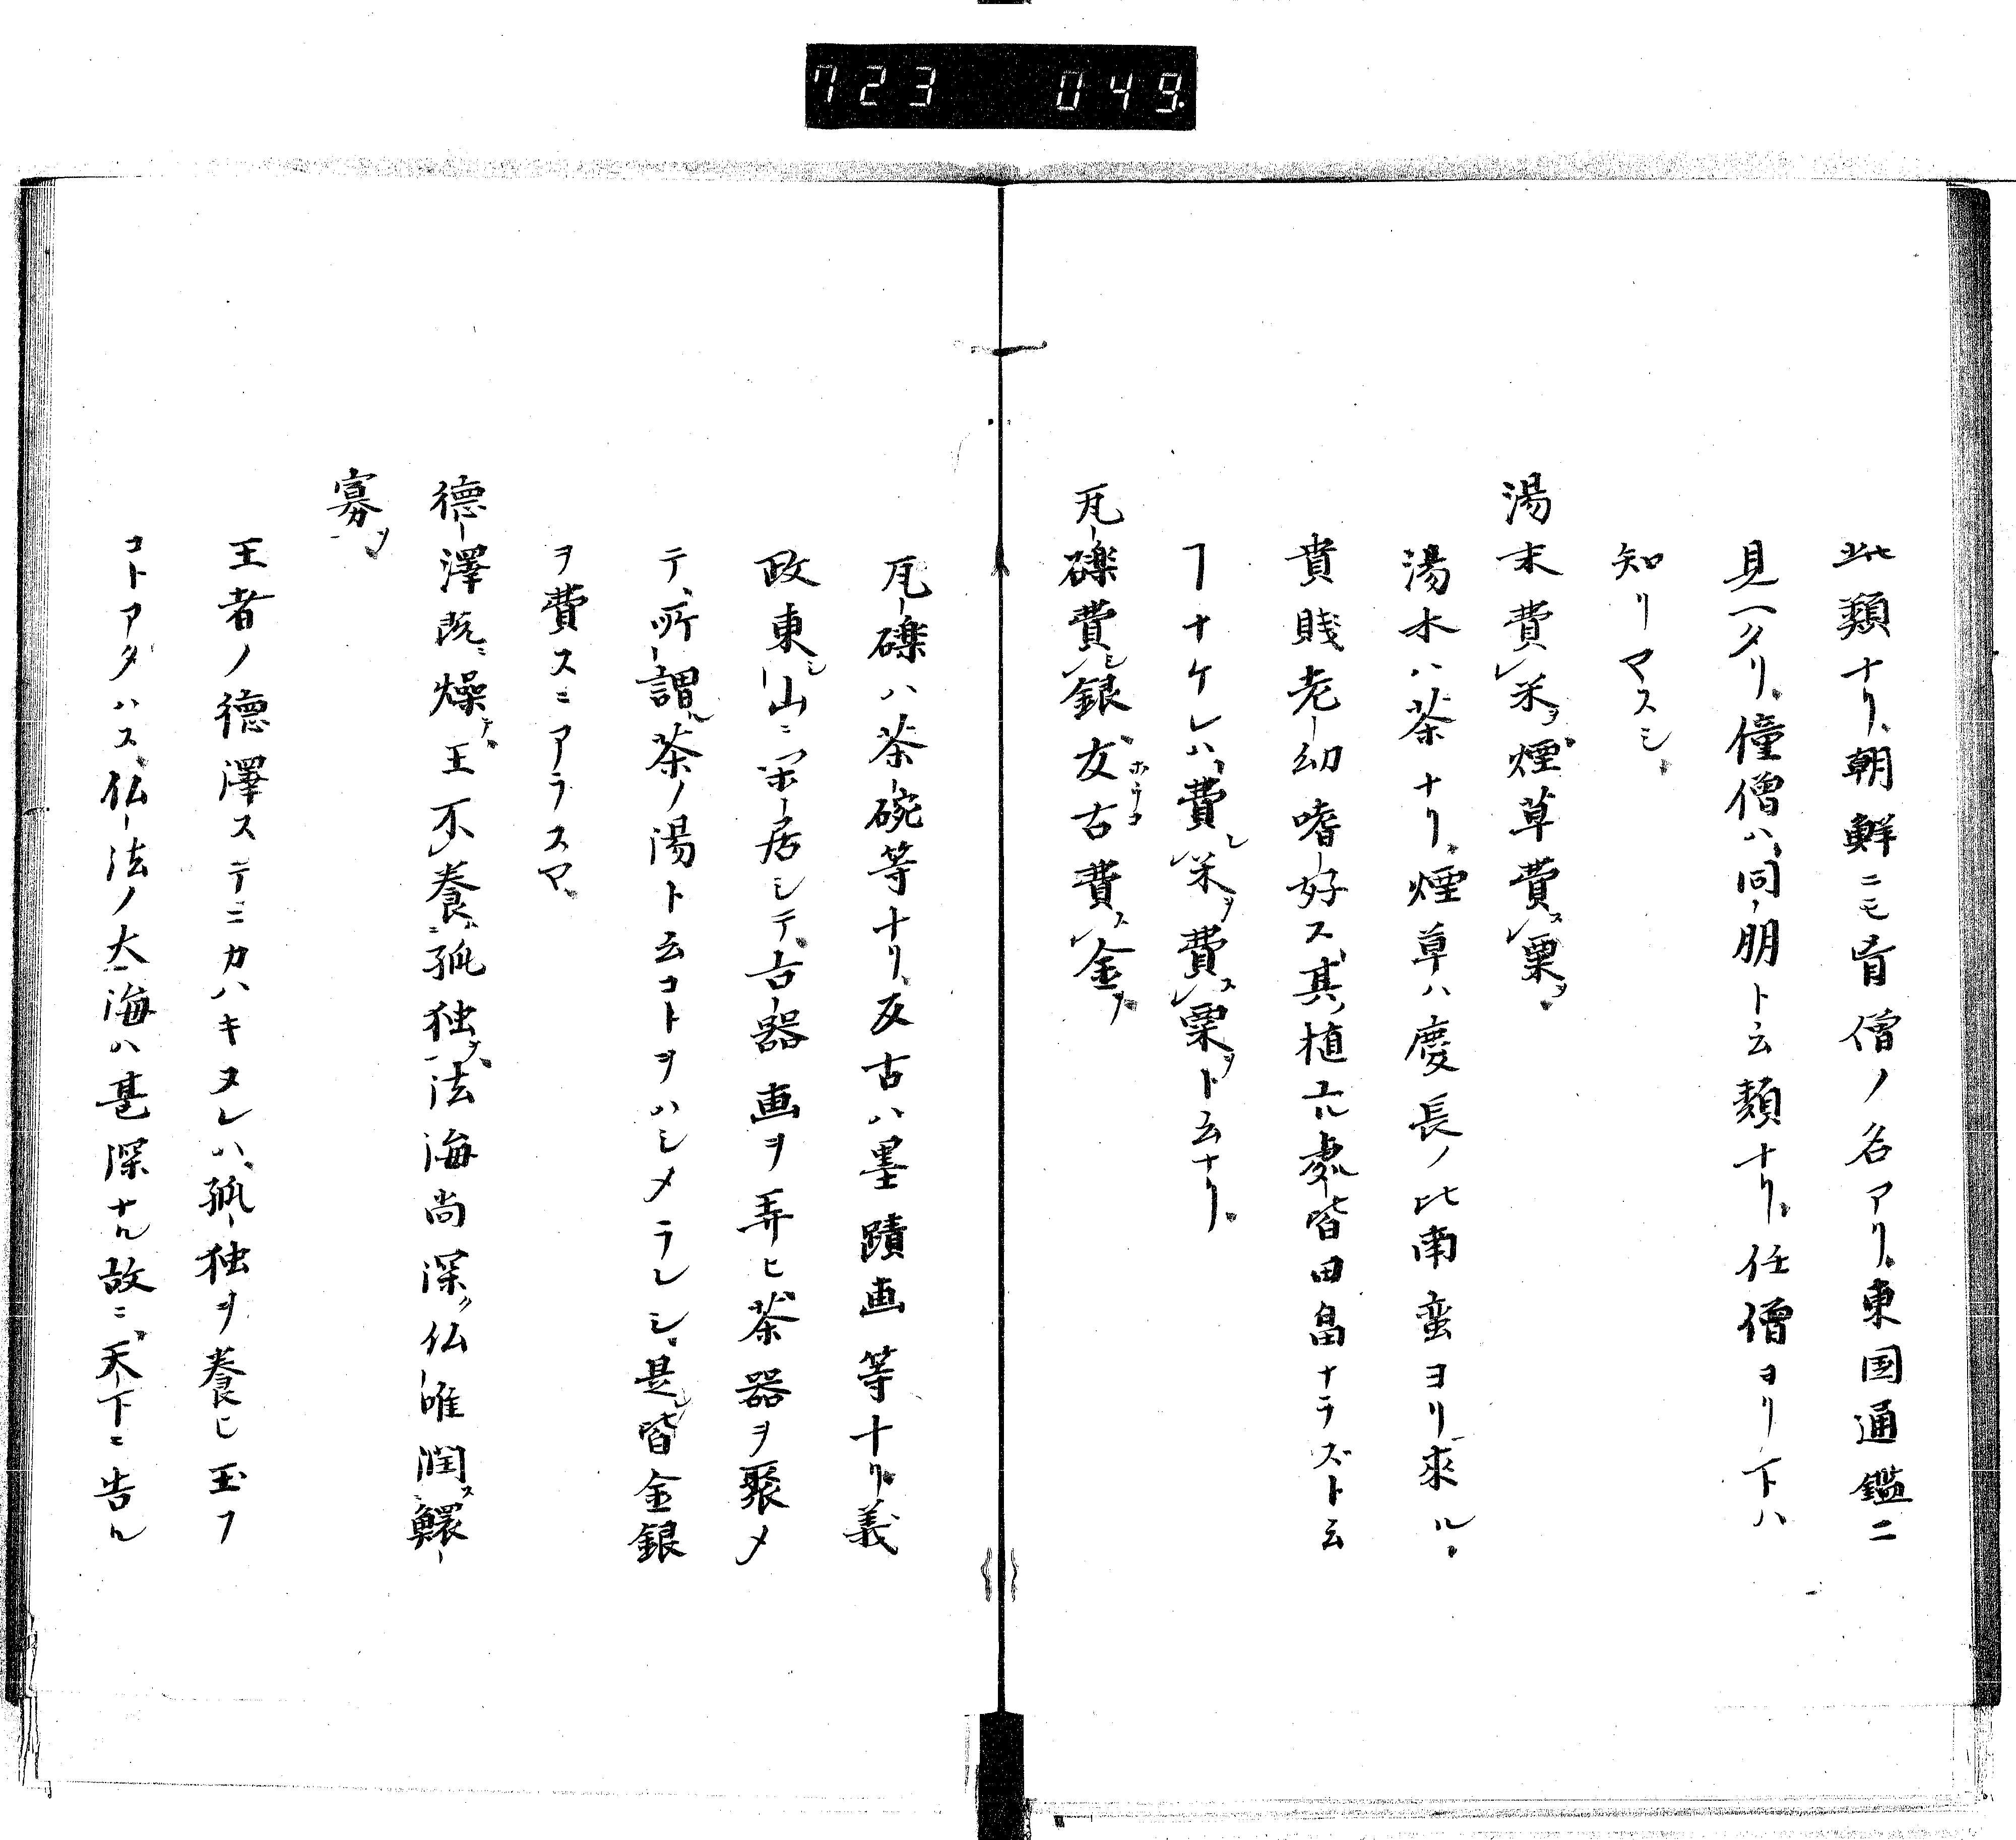 723 049
此類ナリ、朝鮮ニモ盲僧ノ名アリ、東国通鑑ニ
見ヘタリ、僮僧ハ、同朋ト云類ナリ、任僧ヨリ下ハ
知リマスシ、
湯末費シ米ヲ煙草費ス粟ヲ、
湯水ハ茶ナリ、煙草ハ慶長ノ比南蛮ヨリ来ル、
貴賎老幼嗜好ス、其植ル処皆田畠ナラズト云
ヿナケレハ、費シ米ヲ費ス粟ヲト云ナリ、
瓦礫費シ銀ヲ友古ホウコ費ス金ヲ、
瓦礫ハ茶碗等ナリ、反古ハ墨蹟画等ナリ、義
政東山ニ閑居シテ、古器画ヲ弄ヒ、茶器ヲ聚メ
テ、所謂ル茶ノ湯ト云コトヲハシメラレシ、是レ皆金銀
ヲ費スニアラスヤ、
徳澤既ニ燥テ王不養ハ孤独ヲ、法海尚深ク仏唯潤ス鰥
寡ヲ、
王者ノ徳澤スデニカハキヌレハ、孤独ヲ養ヒ玉フ
コトアタハス、仏法ノ大海ハ甚深ナル故ニ、天下ニ告ル